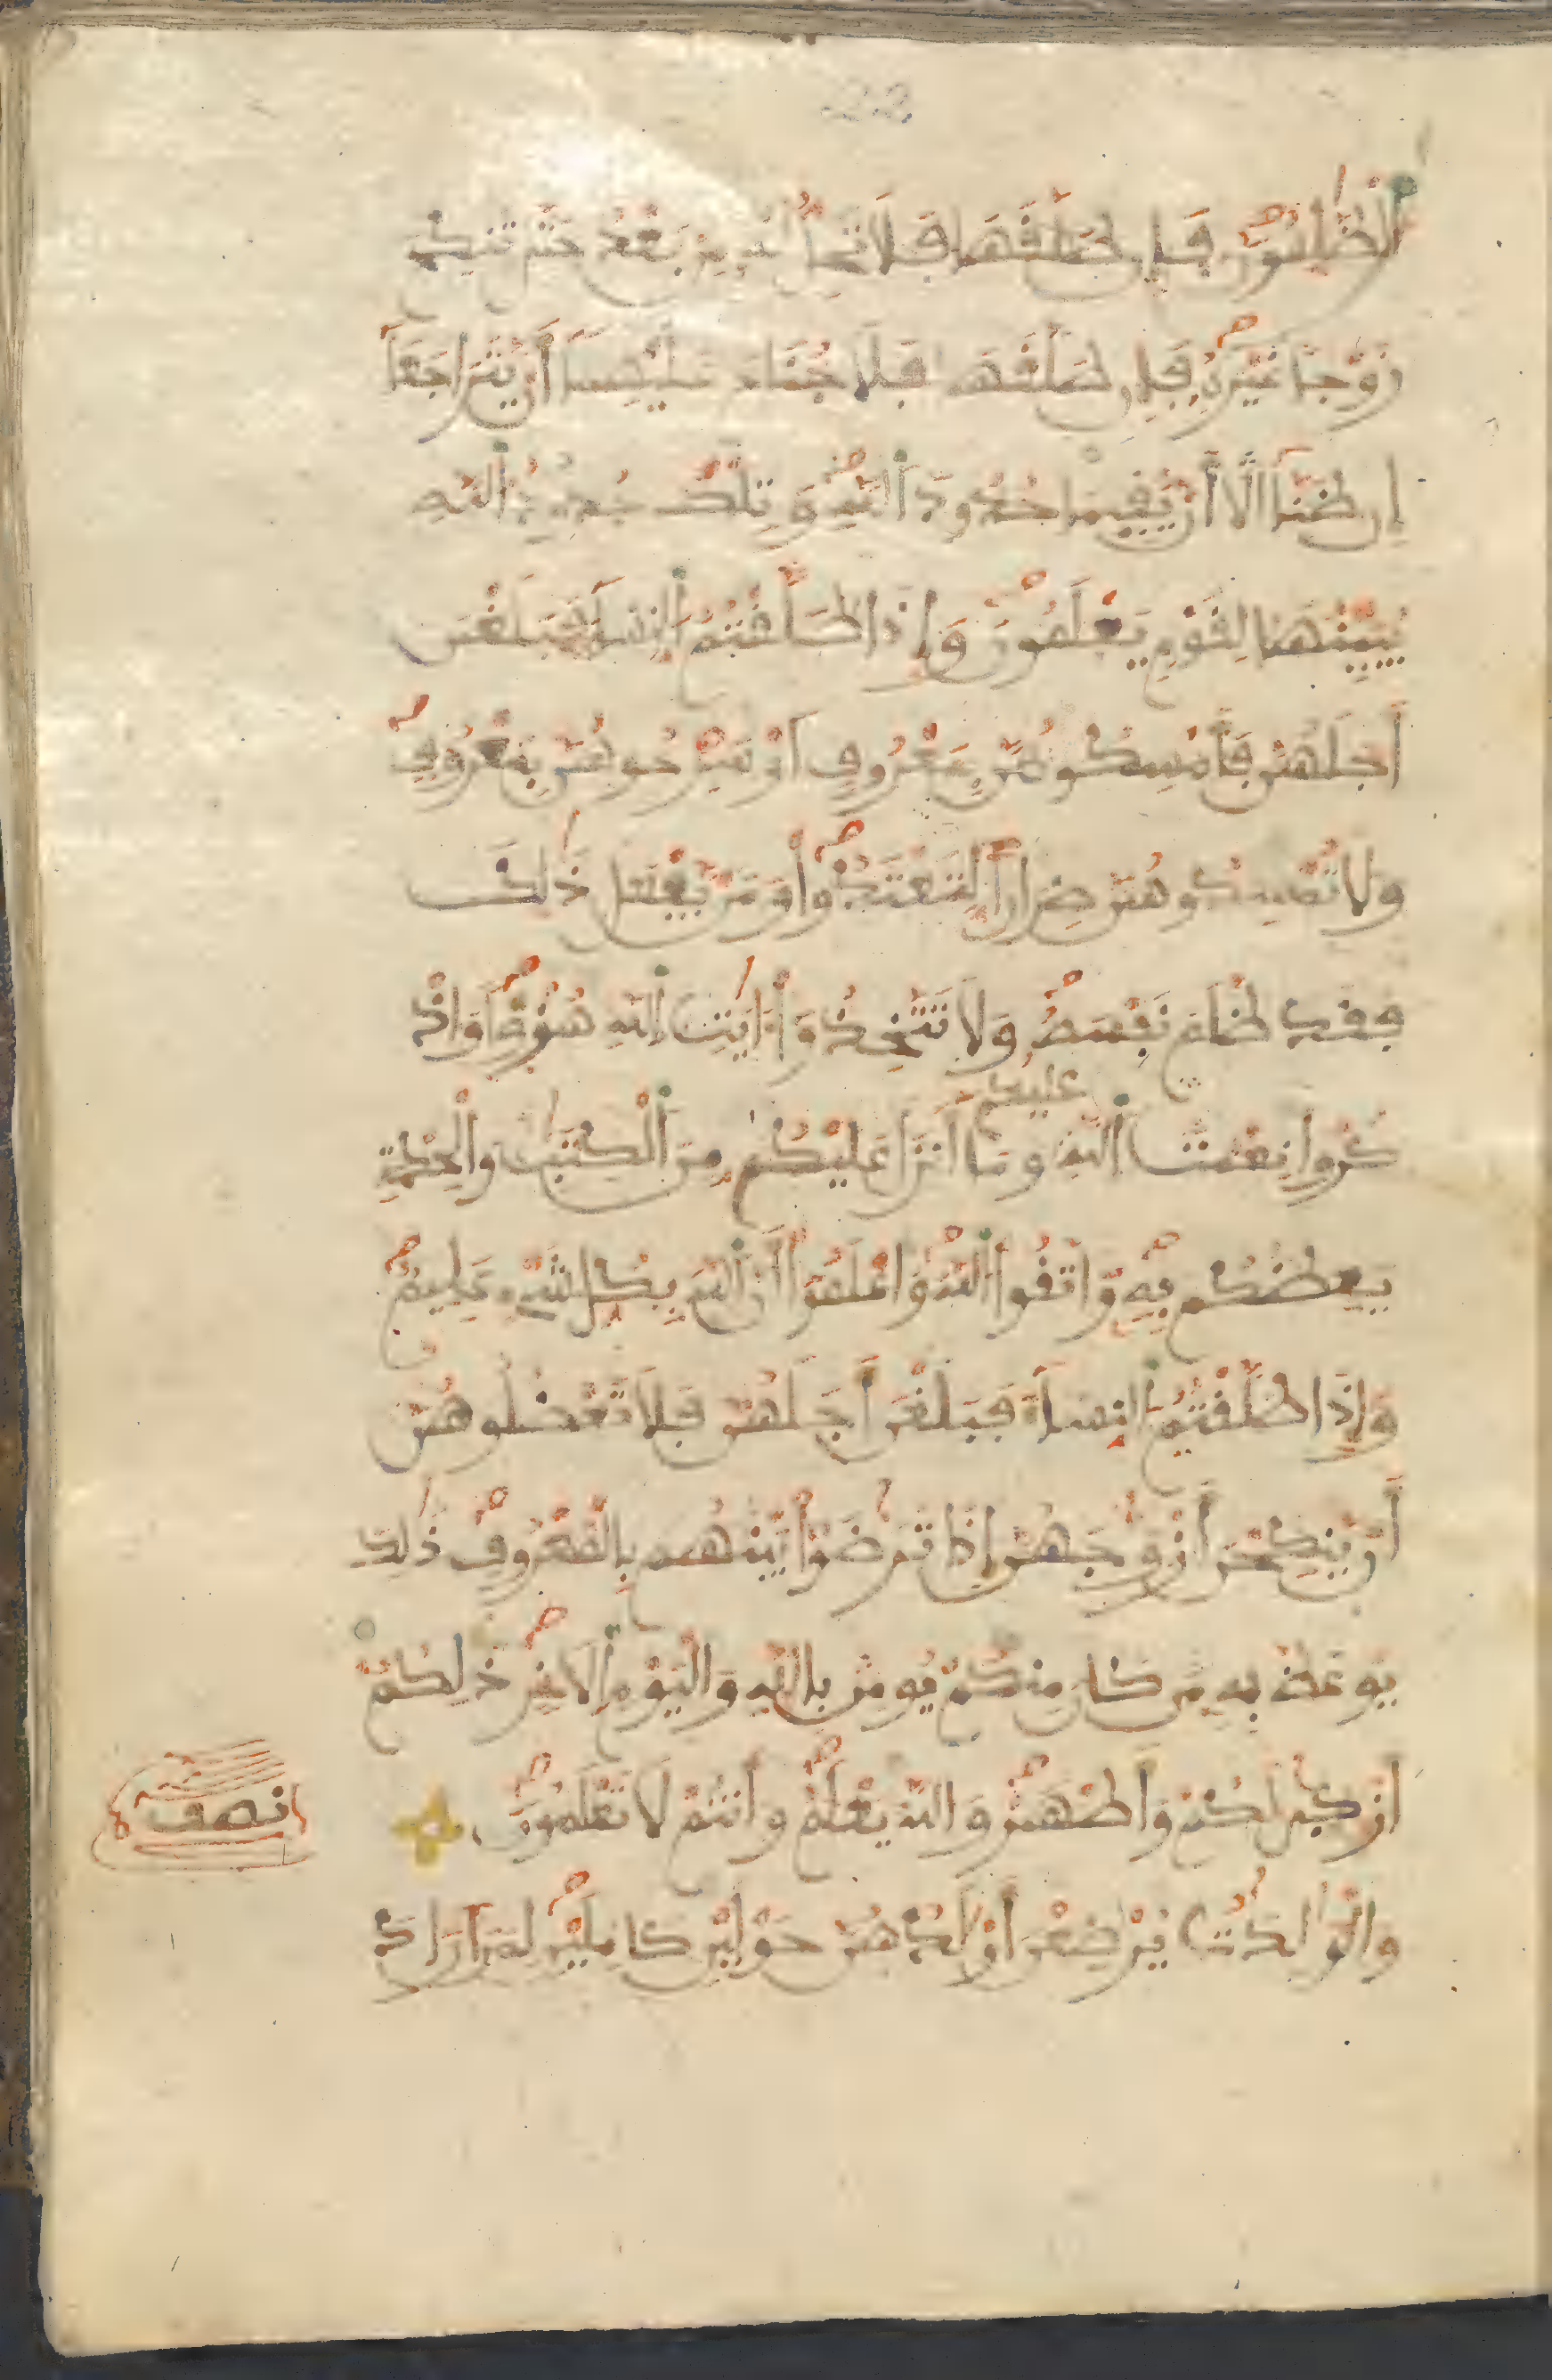 الظلمون فإن طلقها فلا تحل له من بعد حتى تنكح
زوجا غيره فإن طلقها فلا جناح عليهما أن يتراجعا
إن ظنا ألا أن يقيما حدود الله وتلك حدود الله
يبينها لقوم يعلمون وإذا طلقتم النساء فبلغن
أجلهن فأمسكوهن بمعروف أو سرحوهن بمعروف
ولا تمسكوهن ضرارا لتعتدوا ومن يفعل ذلك
فقد ظلم نفسه ولا تتخذوا ءايت الله هزؤا واذ
عليكم
كروا نعمت الله وما أنزل عليكم من الكتب والحكمة
يعظكم به واتقوا الله واعلموا أن الله بكل شيء عليم
وإذا طلقتم النساء فبلغن أجلهن فلا تعضلوهن
أن ينكحن أزوجهن إذا ترضوا بينهم بالمعروف ذلك
يوعظ به من كان منكم يومن بالله واليوم الاخر ذلكم
أزكى لكم وأطهر والله يعلم وأنتم لا تعلمون
نصف
والولدت يرضعن أولدهن حولين كاملين لمن اراد